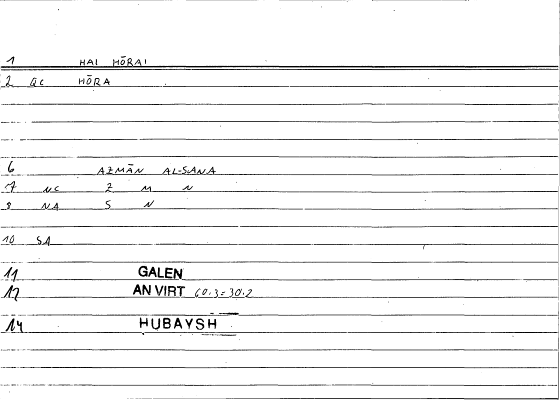 1 HAI HŌRAI
2 GC HŌRA
6 AZMĀN AL-SANA
7 NC Z M N
8 NA S N
10 SA
11 GALEN
12 AN VIRT 60.3=30.2
14 HUBAYSH